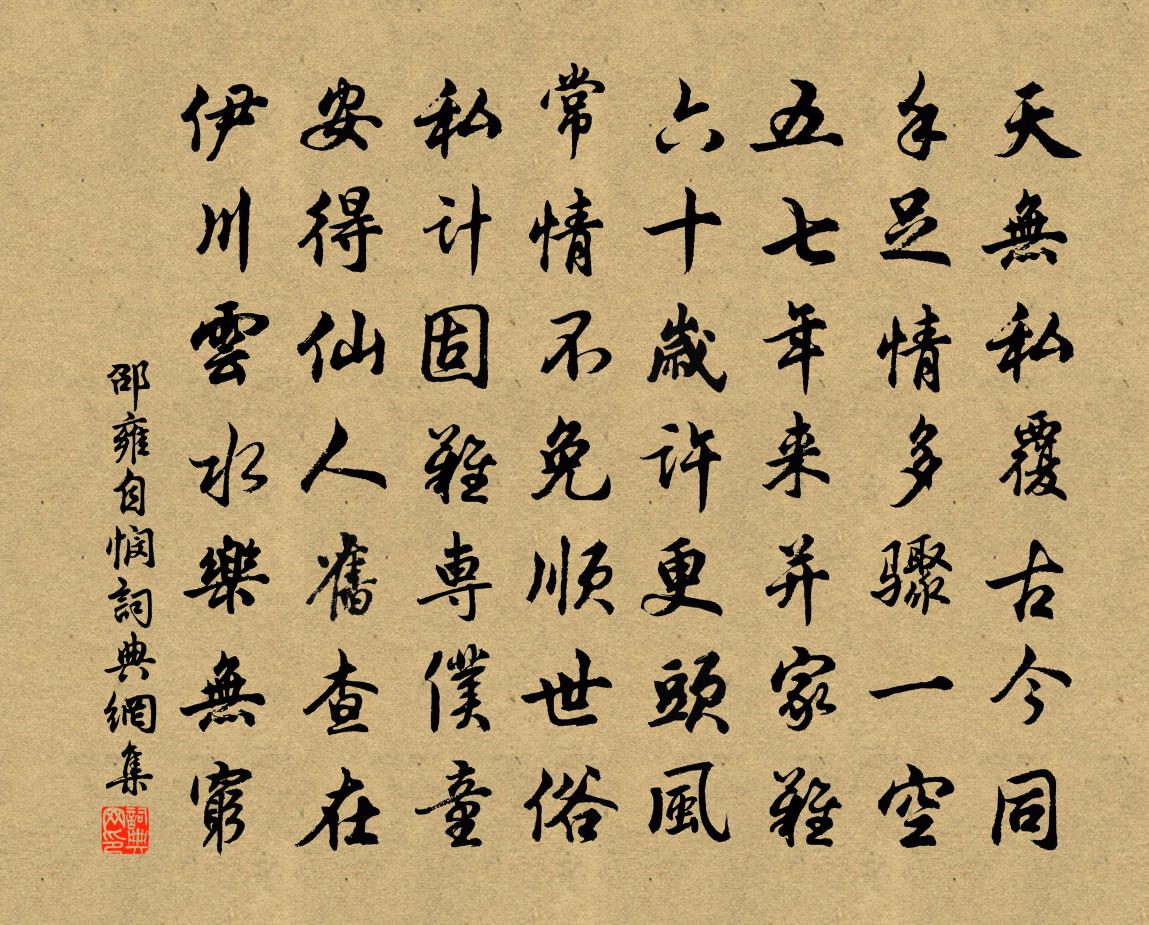 天無私覆古今同
手足情多驟一空
五七年来并家難
六十歲許更頭風
常情不免順世俗
私計固難専僕童
安得仙人舊查在
伊川雲水樂無窮
邵雍自憫詞典網集
詞典網印